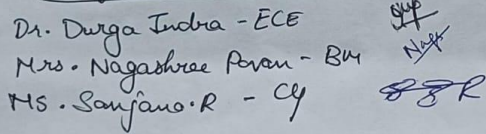 Dr. Durga Indra - ECE
Mrs. Nagashree Pavan - BM
MS. Sanjana.R - CY